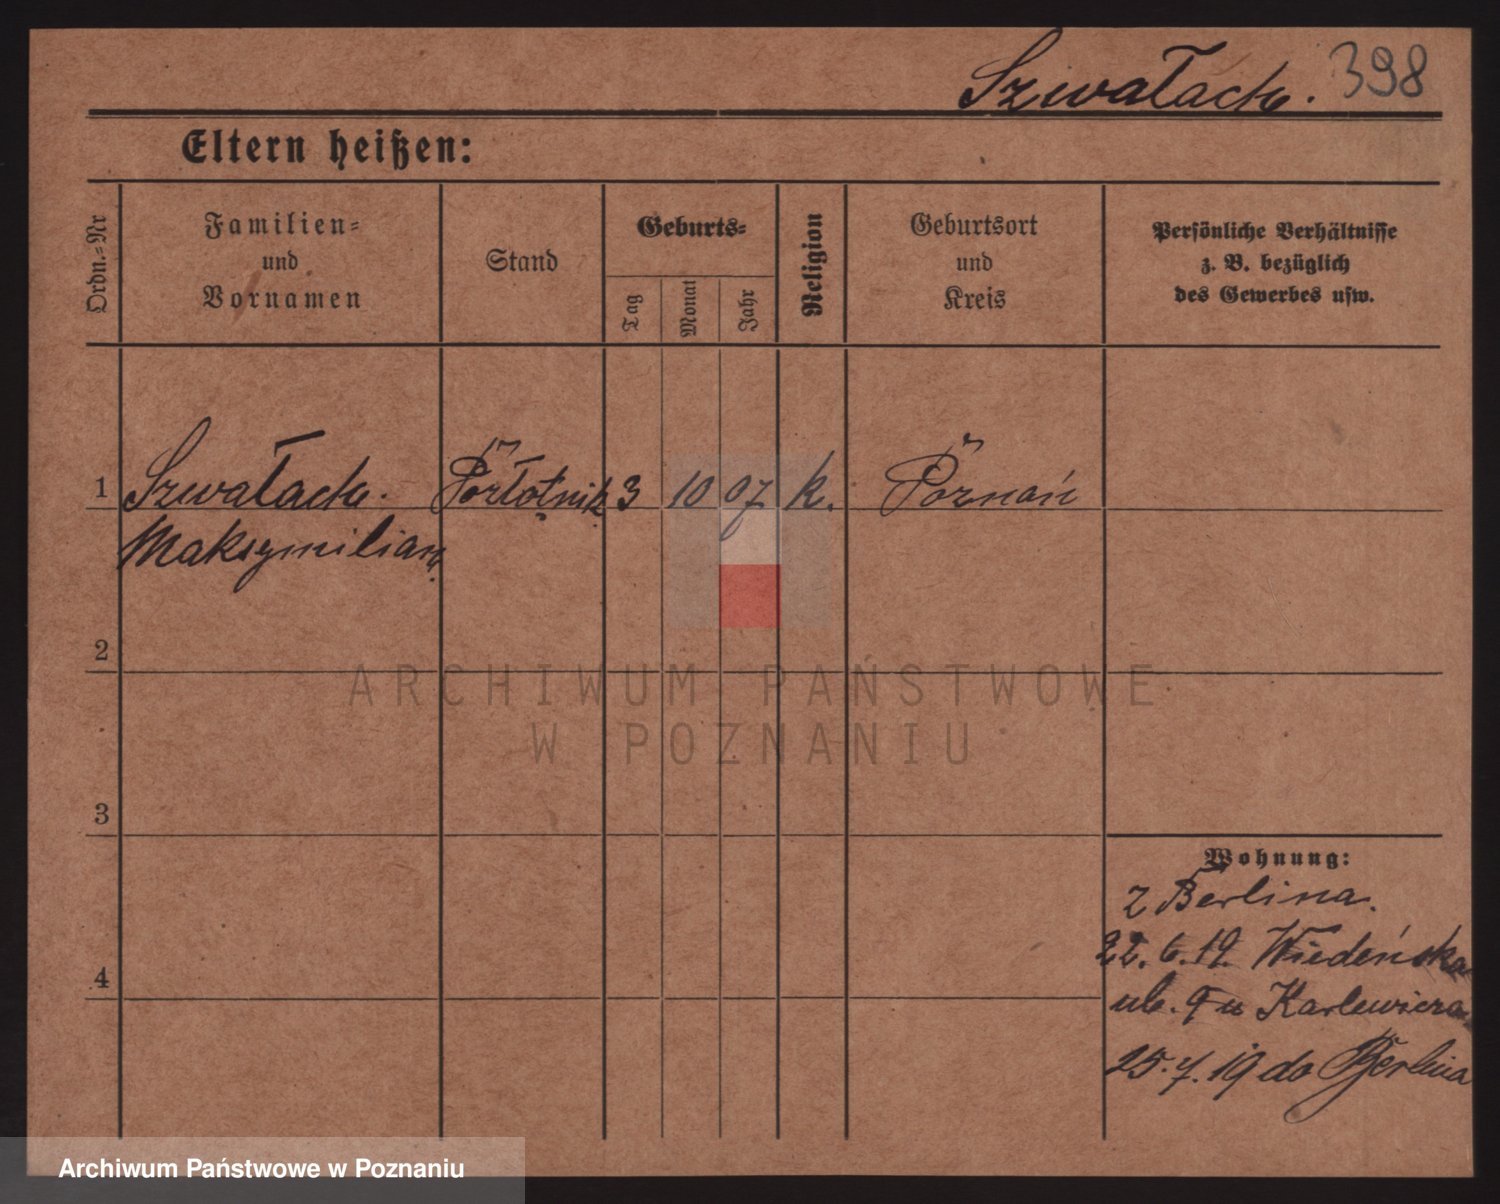 Szwałach. 398
Eltern heißen:
Ordn.-Nr
Familien-
und
Vornamen
Stand
Geburts-
Tag
Monat
Jahr
Religion
Geburtsort
und
Kreis
Persönliche Verhältnisse
z. B. bezüglich
des Gewerbes usw.
1 Szwałach. 3 10 07 k. Poznań
Maksymilian
2
3
4
Wohnung:
z Berlina.
22. 6. 19. Wiedeńska
ul. 9 u Karlewicza
25. 7. 19 do Berlina
ARCHIWUM PAŃSTWOWE
W POZNANIU
Archiwum Państwowe w Poznaniu